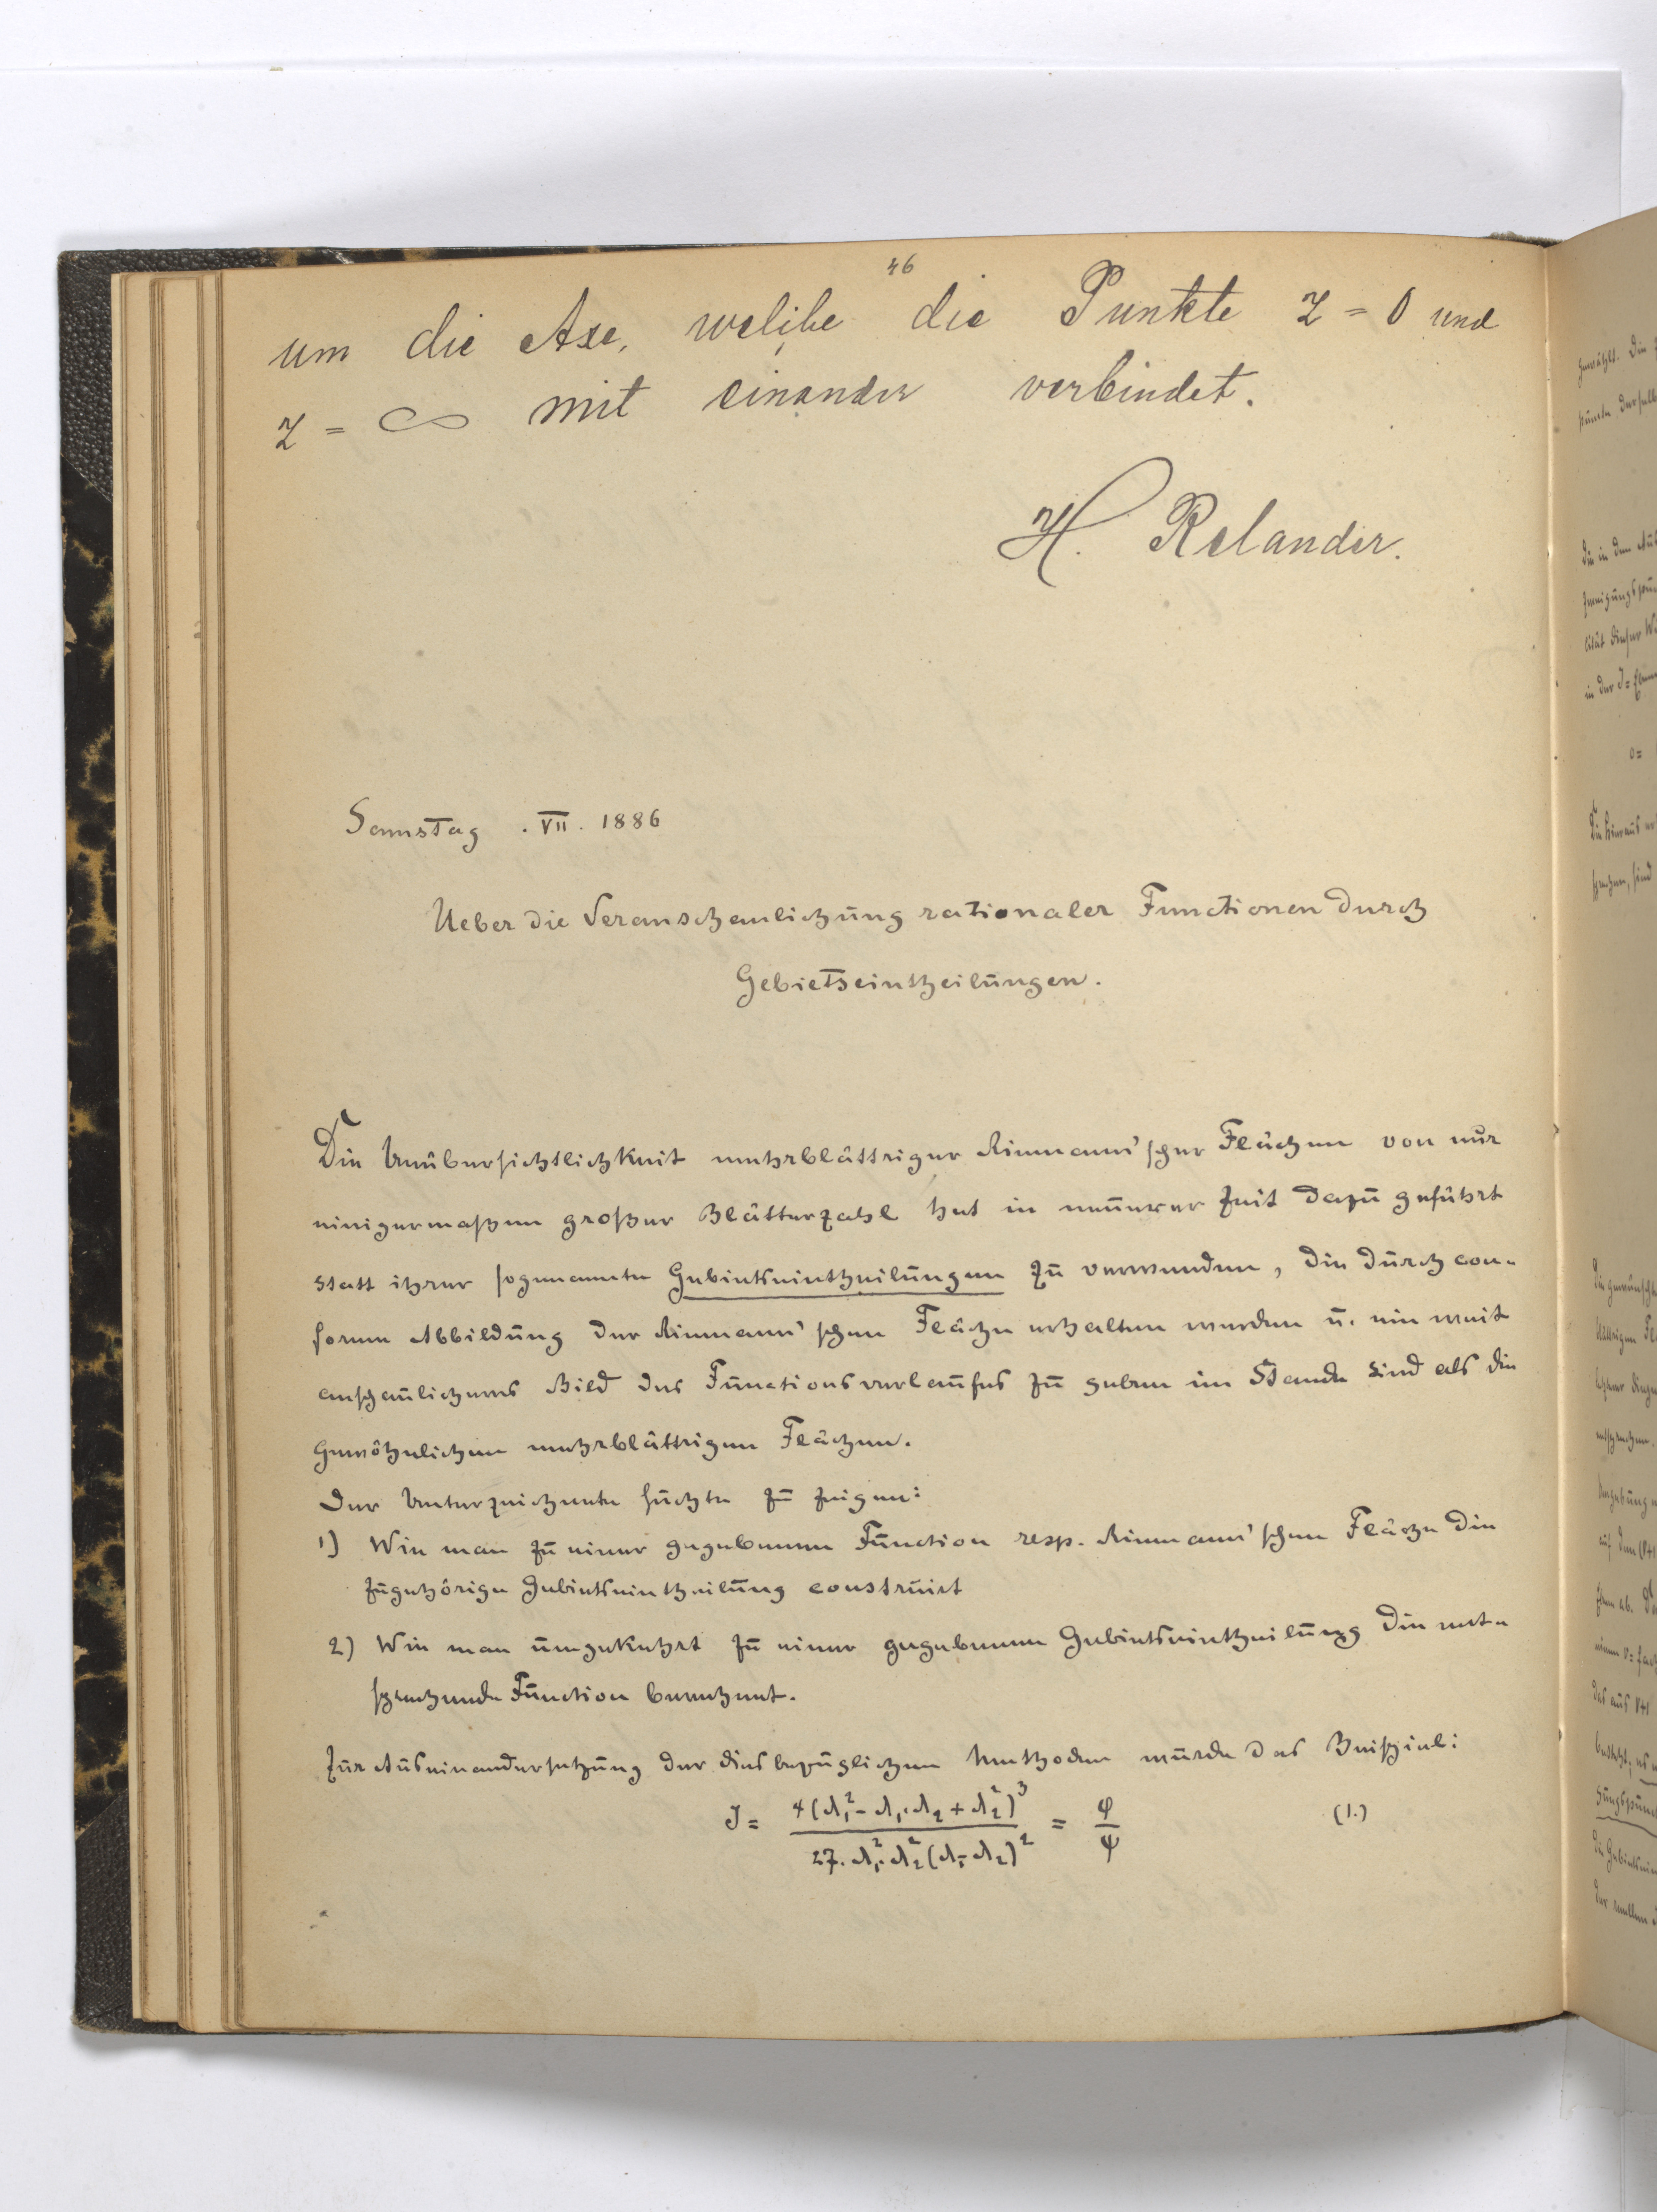 46
um die Axe, welche die Punkte z = 0 und
z = ∞ mit einander verbindet.
H. Relander.
Samstag . VII. 1886
Ueber die Veranschaulichung rationaler Functionen durch
Gebietseintheilungen.
Die Unübersichtlichkeit mehrblättriger Riemann'scher Flächen von nur
einigermaßen großer Blätterzahl hat in neuerer Zeit dazu geführt
statt ihrer sogenannte Gebietseintheilungen zu verwenden, die durch con-
forme Abbildung der Riemann'schen Fläche erhalten werden u. ein weit
anschaulicheres Bild des Functionsverlaufes zu geben im Stande sind als die
gewöhnlichen mehrblättrigen Flächen.
Der Unterzeichnete suchte zu zeigen:
1) Wie man zu einer gegebenen Function resp. Riemann'schen Fläche die
zugehörige Gebietseintheilung construirt
2) Wie man umgekehrt zu einer gegebenen Gebietseintheilung die ent-
sprechende Function berechnet.
Zur Auseinandersetzung der diesbezüglichen Methoden wurde das Beispiel:
J = 4(λ₁² - λ₁.λ₂ + λ₂²)³ / 27. λ₁².λ₂²(λ₁-λ₂)² = φ/ψ (1.)